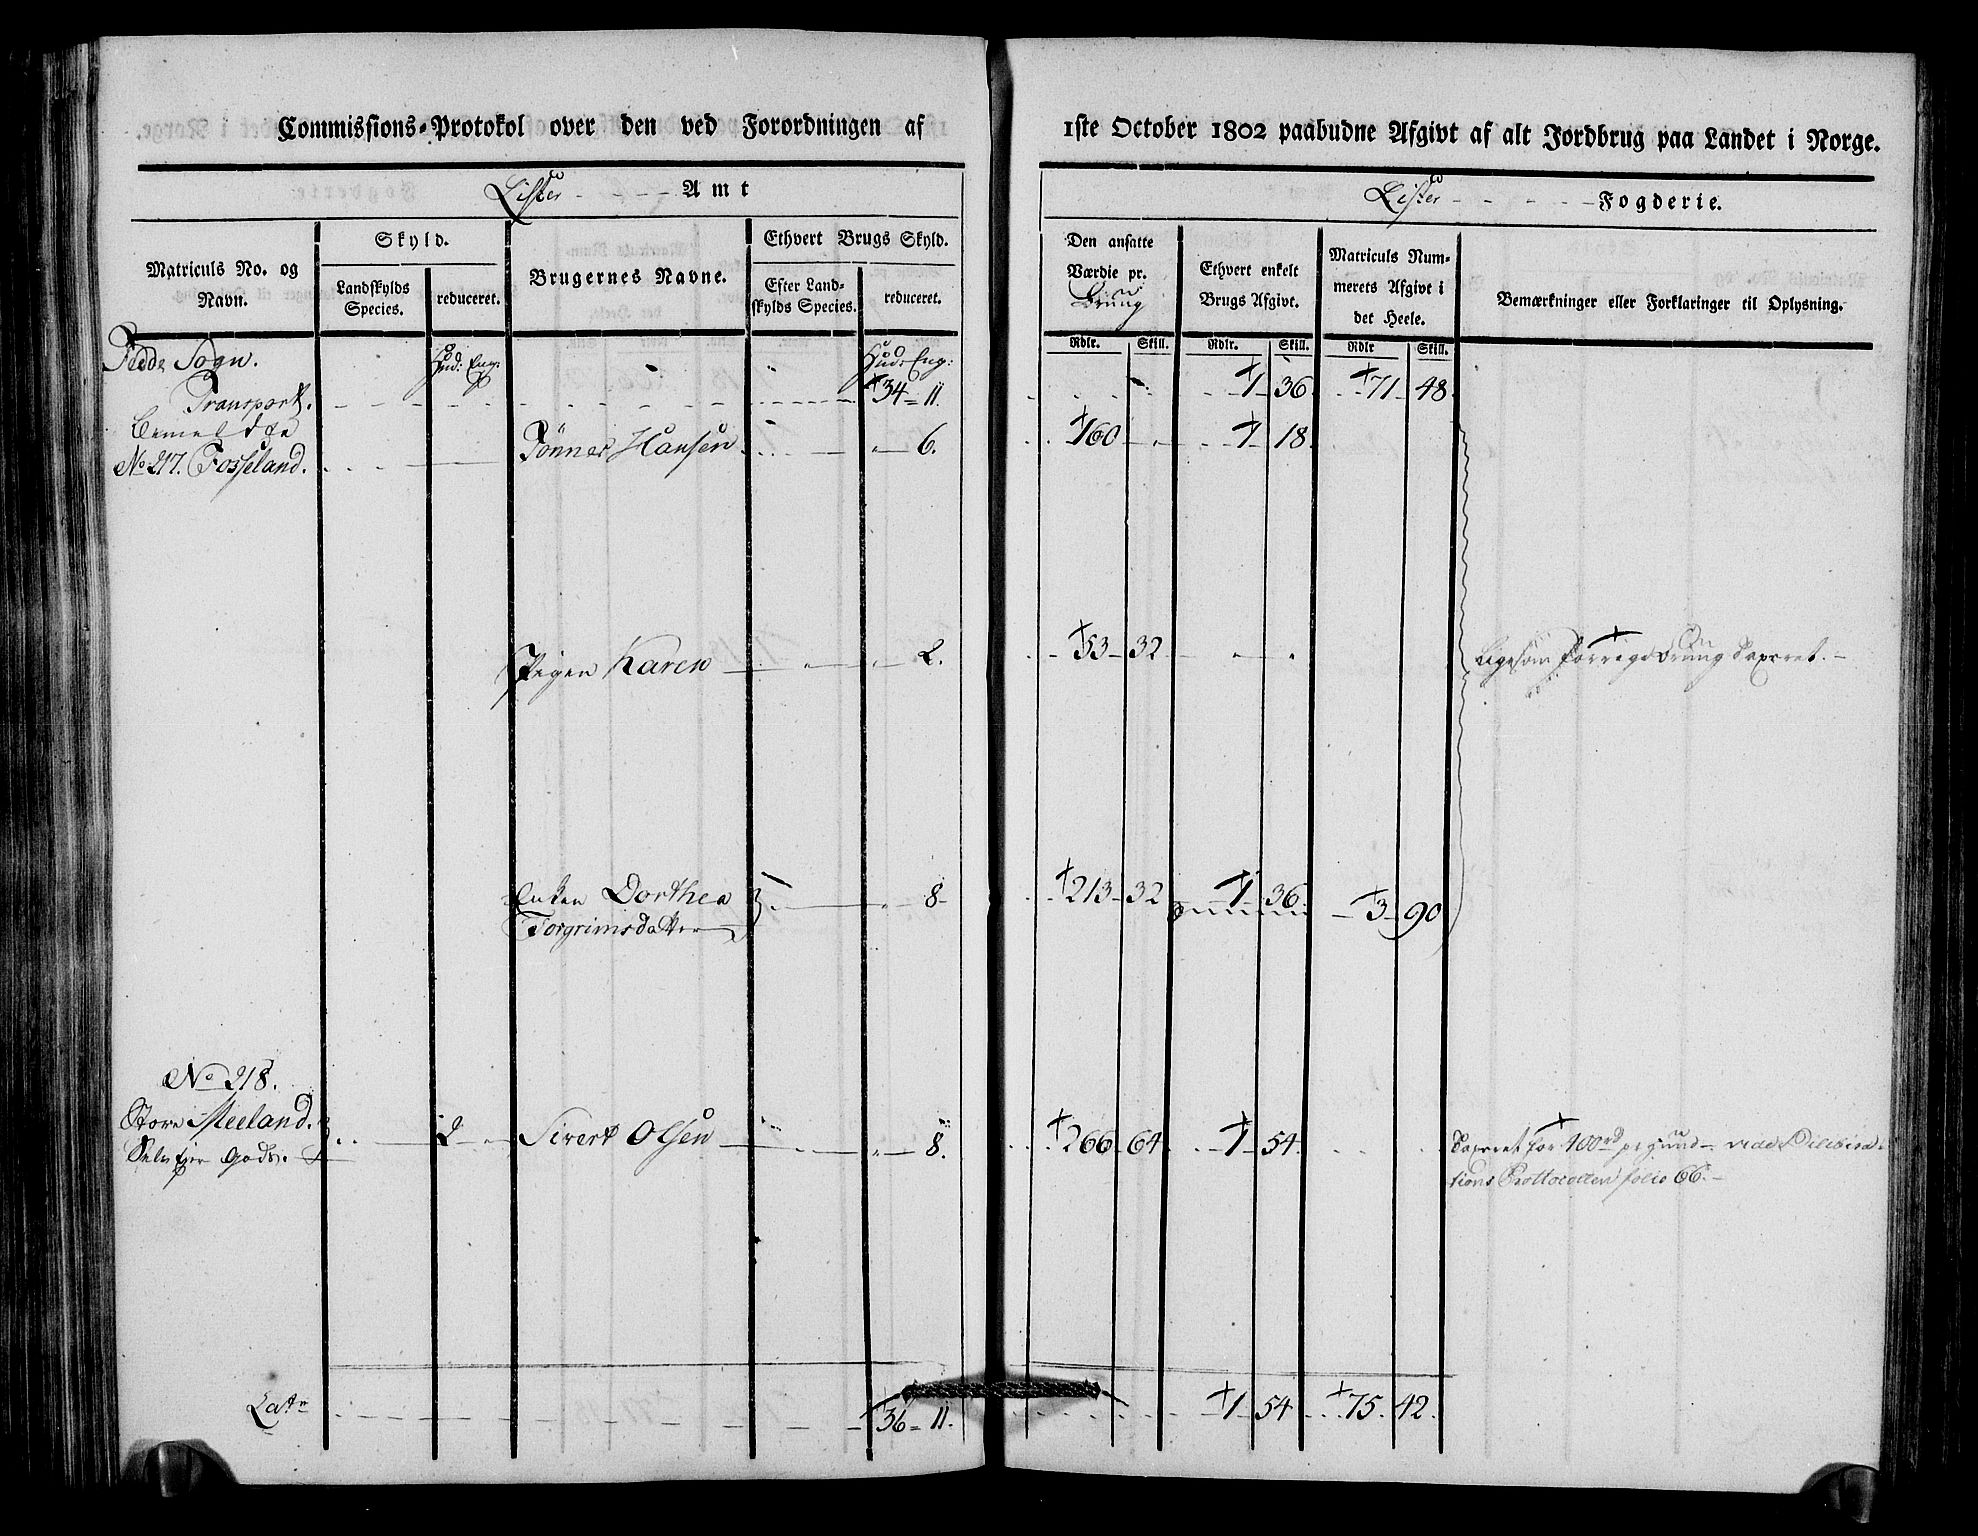 Commissions-Protokol over den ved Forordningen af
1ste October 1802 paabudne Afgivt af alt Jordbrug paa Landet i Norge.
Lister Amt
Lister Fogderie.
Matriculs No. og Navn.
Skyld.
Landskylds Species.
reduceret.
Brugernes Navne.
Ethvert Brugs Skyld.
Efter Landskylds Species.
reduceret.
Den ansatte Værdie pr. Brung
Ethvert enkelt Brugs Afgivt.
Matriculs Nummerets Afgivt i det Heele.
Bemærkninger eller Forklaringer til Oplysning.
Rdlr. Skill. Rdlr. Skill. Rdlr Skill.
Fedde Sogn. Hud: Eng: Hud: Eng:
Transport. 34 11. 1 36 71 48.
No 217. Fosseland. Tønnes Hansen 6. 160 1 18.
Pigen Karen 2. 53 32 Ligesom forrige Brung Taxeret.
Enken Dorthea 8 213 32 1 36 3 90
Torgrimsdatter
No 218.
Store Meeland. 2 Sivert Olsen 8. 266 64 1 54. Taxeret for 400rd pr gund vide Delibera-
Selv Ejer Gods. tions Prottocollen folio 66.
Latr 36 11. 1 54 75 42.